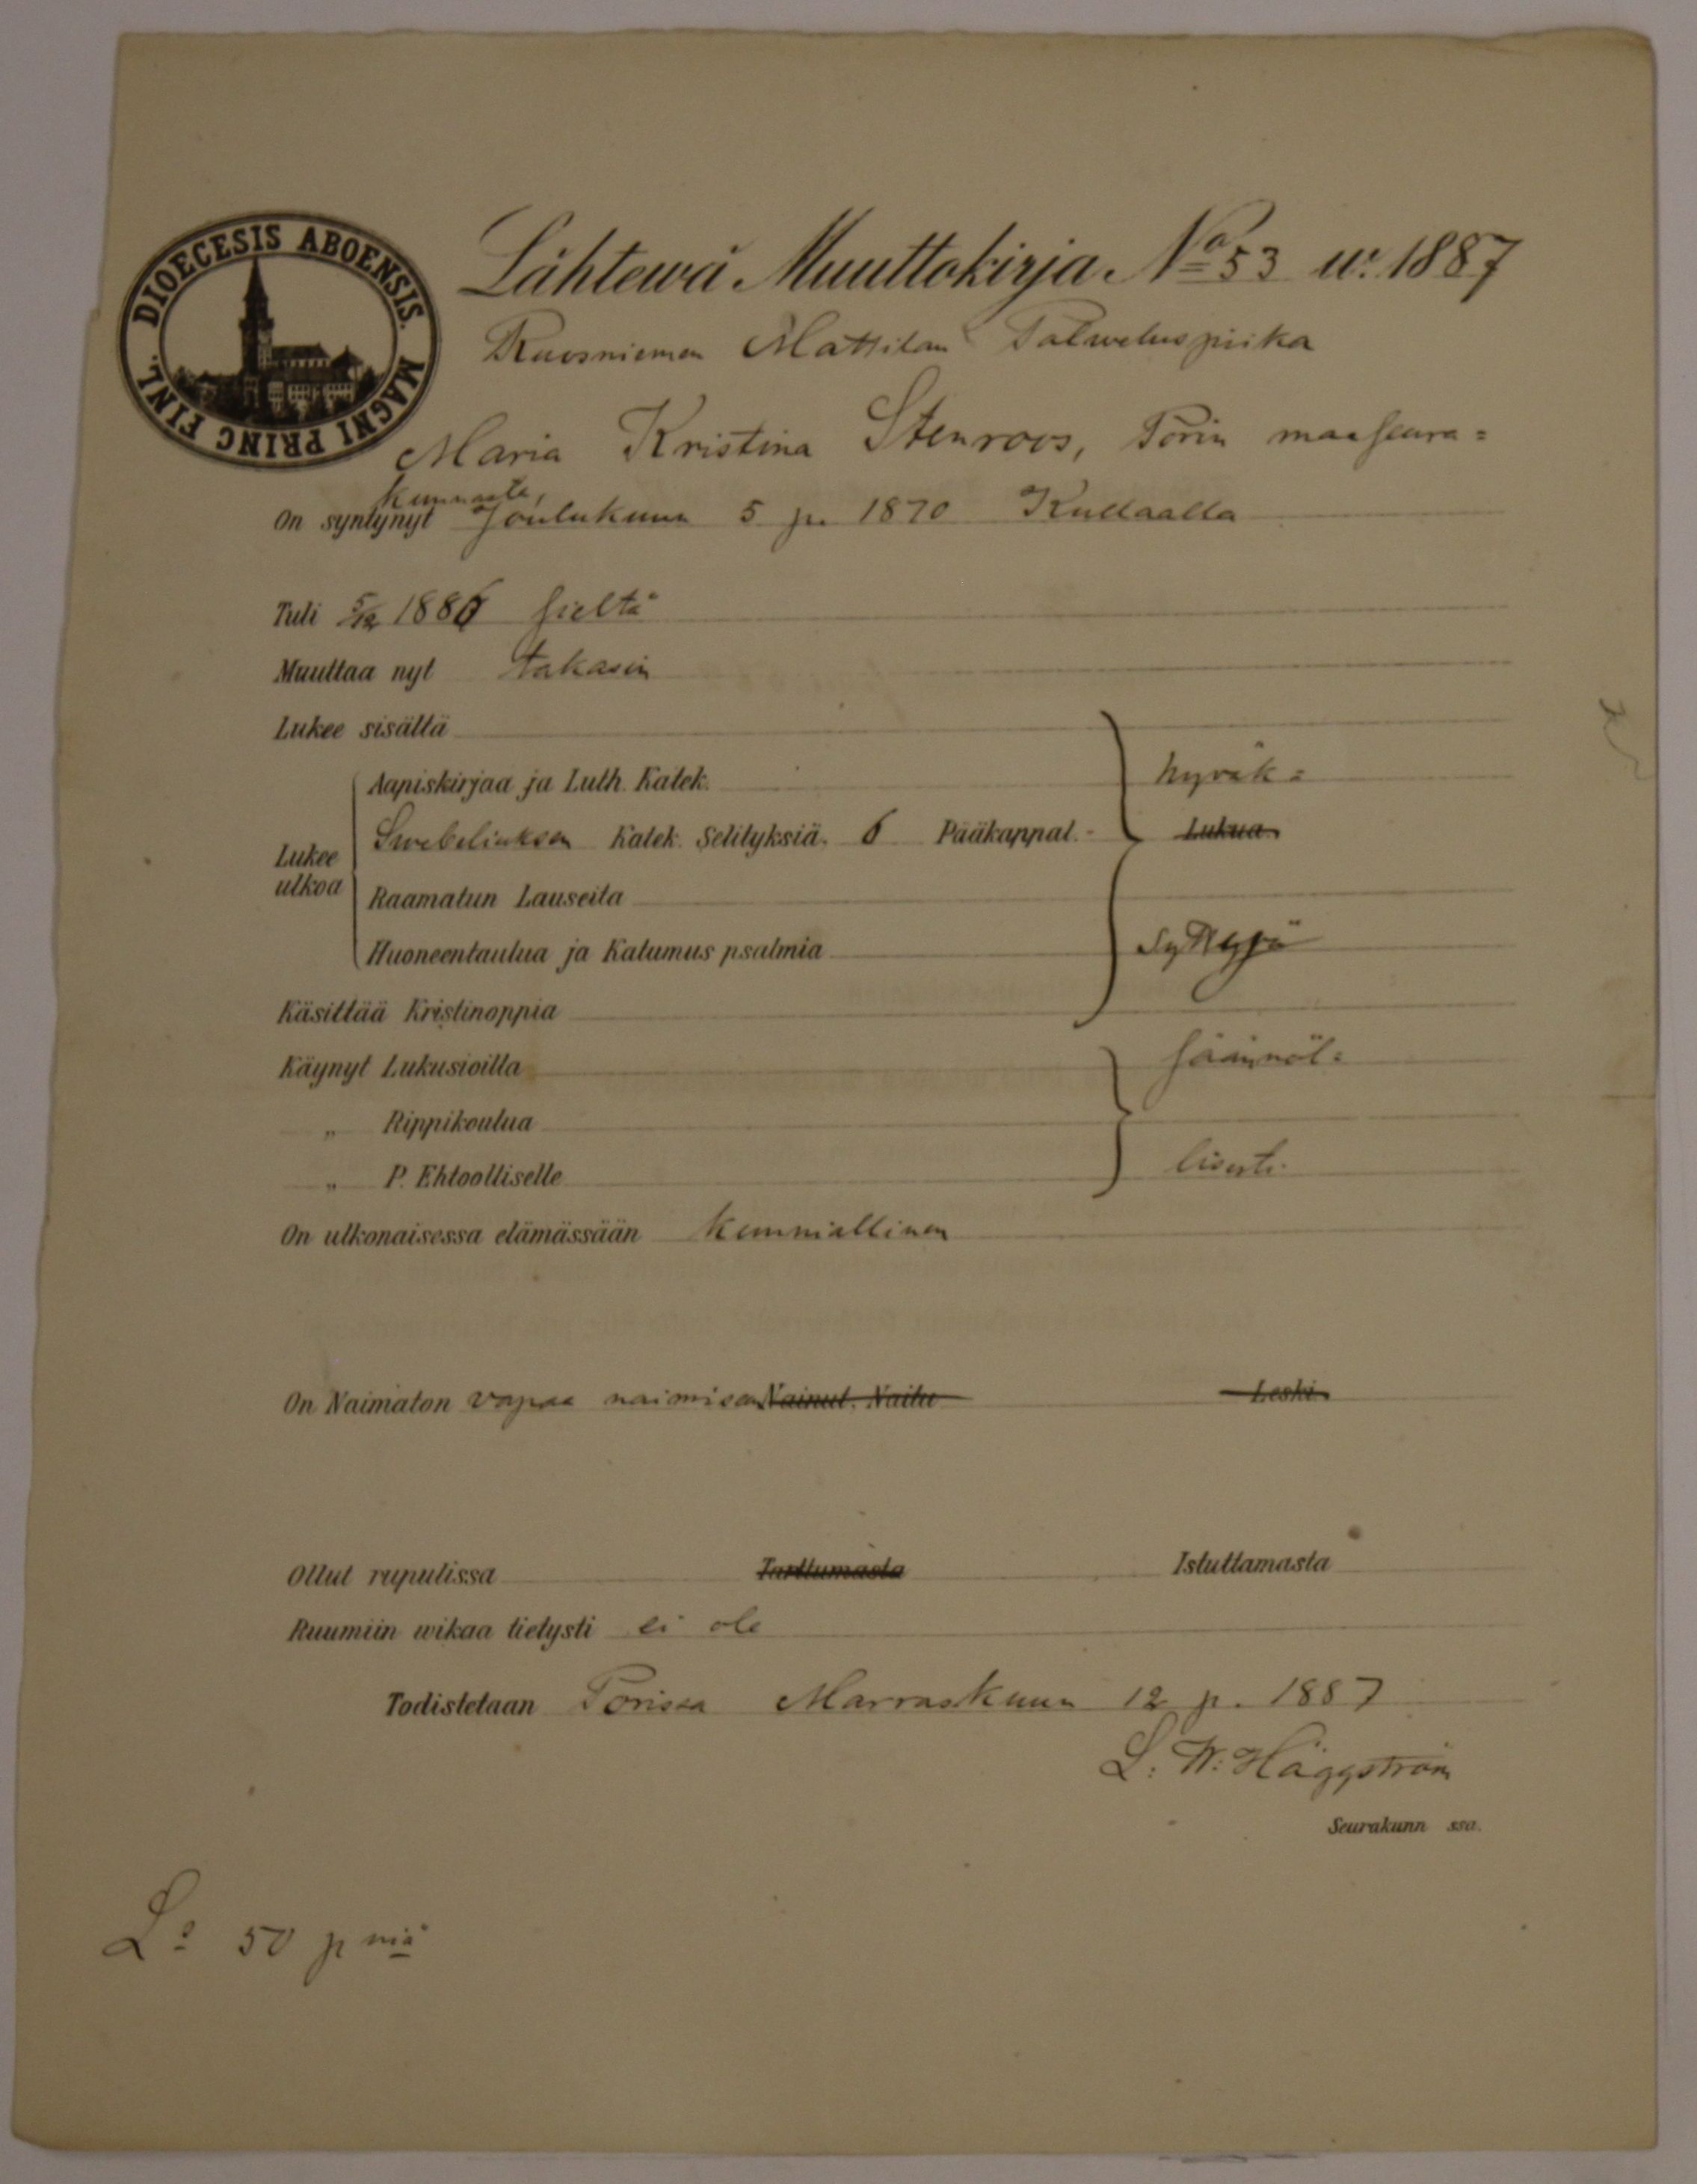 DIOECESIS ABOENSIS. MAGNI PRINC FINL.
Lähtewä Muuttokirja No 53 w. 1887
Ruosniemen Mattilan Palweluspiika
Maria Kristina Stenroos, Porin maaseura=
kunnasta,
On syntynyt Joulukuun 5 p. 1870 Kullaalla
Tuli 5/12 1886 sieltä
Muuttaa nyt takasin
Lukee sisältä
Aapiskirjaa ja Luth. Katek. hyväk=
Lukee ulkoa Swebeliuksen Katek. Selityksiä. 6 Pääkappal. - Lukua.
Raamatun Lauseita
Huoneentaulua ja Katumus psalmia
Käsittää Kristinoppia
Käynyt Lukusioilla säännöl=
„ Rippikoulua
„ P. Ehtoolliselle lisesti.
On ulkonaisessa elämässään kunniallinen
On Naimaton vapaa naimisen Nainut. Naitu Leski.
Ollut rupulissa Tarttumasta Istuttamasta
Ruumiin wikaa tietysti ei ole
Todistetaan Porissa Marraskuun 12 p. 1887
L. W. Häggström
Seurakunn ssa.
50 p